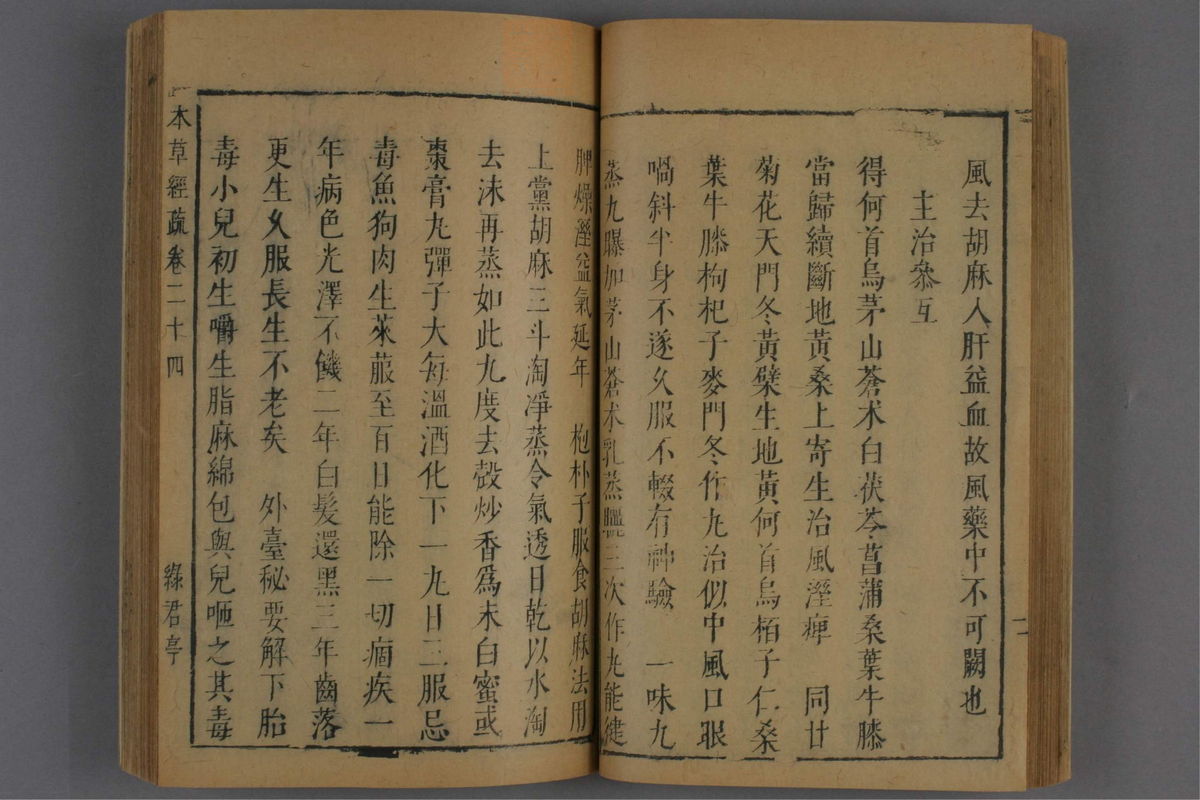 風去胡麻入肝益血故風藥中不可闕也
主治叅互
得何首烏茅山蒼术白茯苓菖蒲桑葉牛膝
當歸續斷地黃桑上寄生治風溼痺 同甘
菊花天門冬黃檗生地黃何首烏栢子仁桑
葉牛膝枸杞子麥門冬作丸治似中風口眼
喎斜半身不遂久服不輟有神驗 一味九
蒸九曝加茅山蒼术乳蒸曬三次作丸能健
脾燥溼益氣延年 抱朴子服食胡麻法用
上黨胡麻三斗淘淨蒸令氣透日乾以水淘
去沫再蒸如此九度去殼炒香為末白蜜或
棗膏丸彈子大每溫酒化下一丸日三服忌
毒魚狗肉生萊菔至百日能除一切痼疾一
年病色光澤不饑二年白髮還黑三年齒落
更生久服長生不老矣 外臺秘要解下胎
毒小兒初生嚼生脂麻綿包與兒咂之其毒
本草經疏 卷二十四 綠君亭